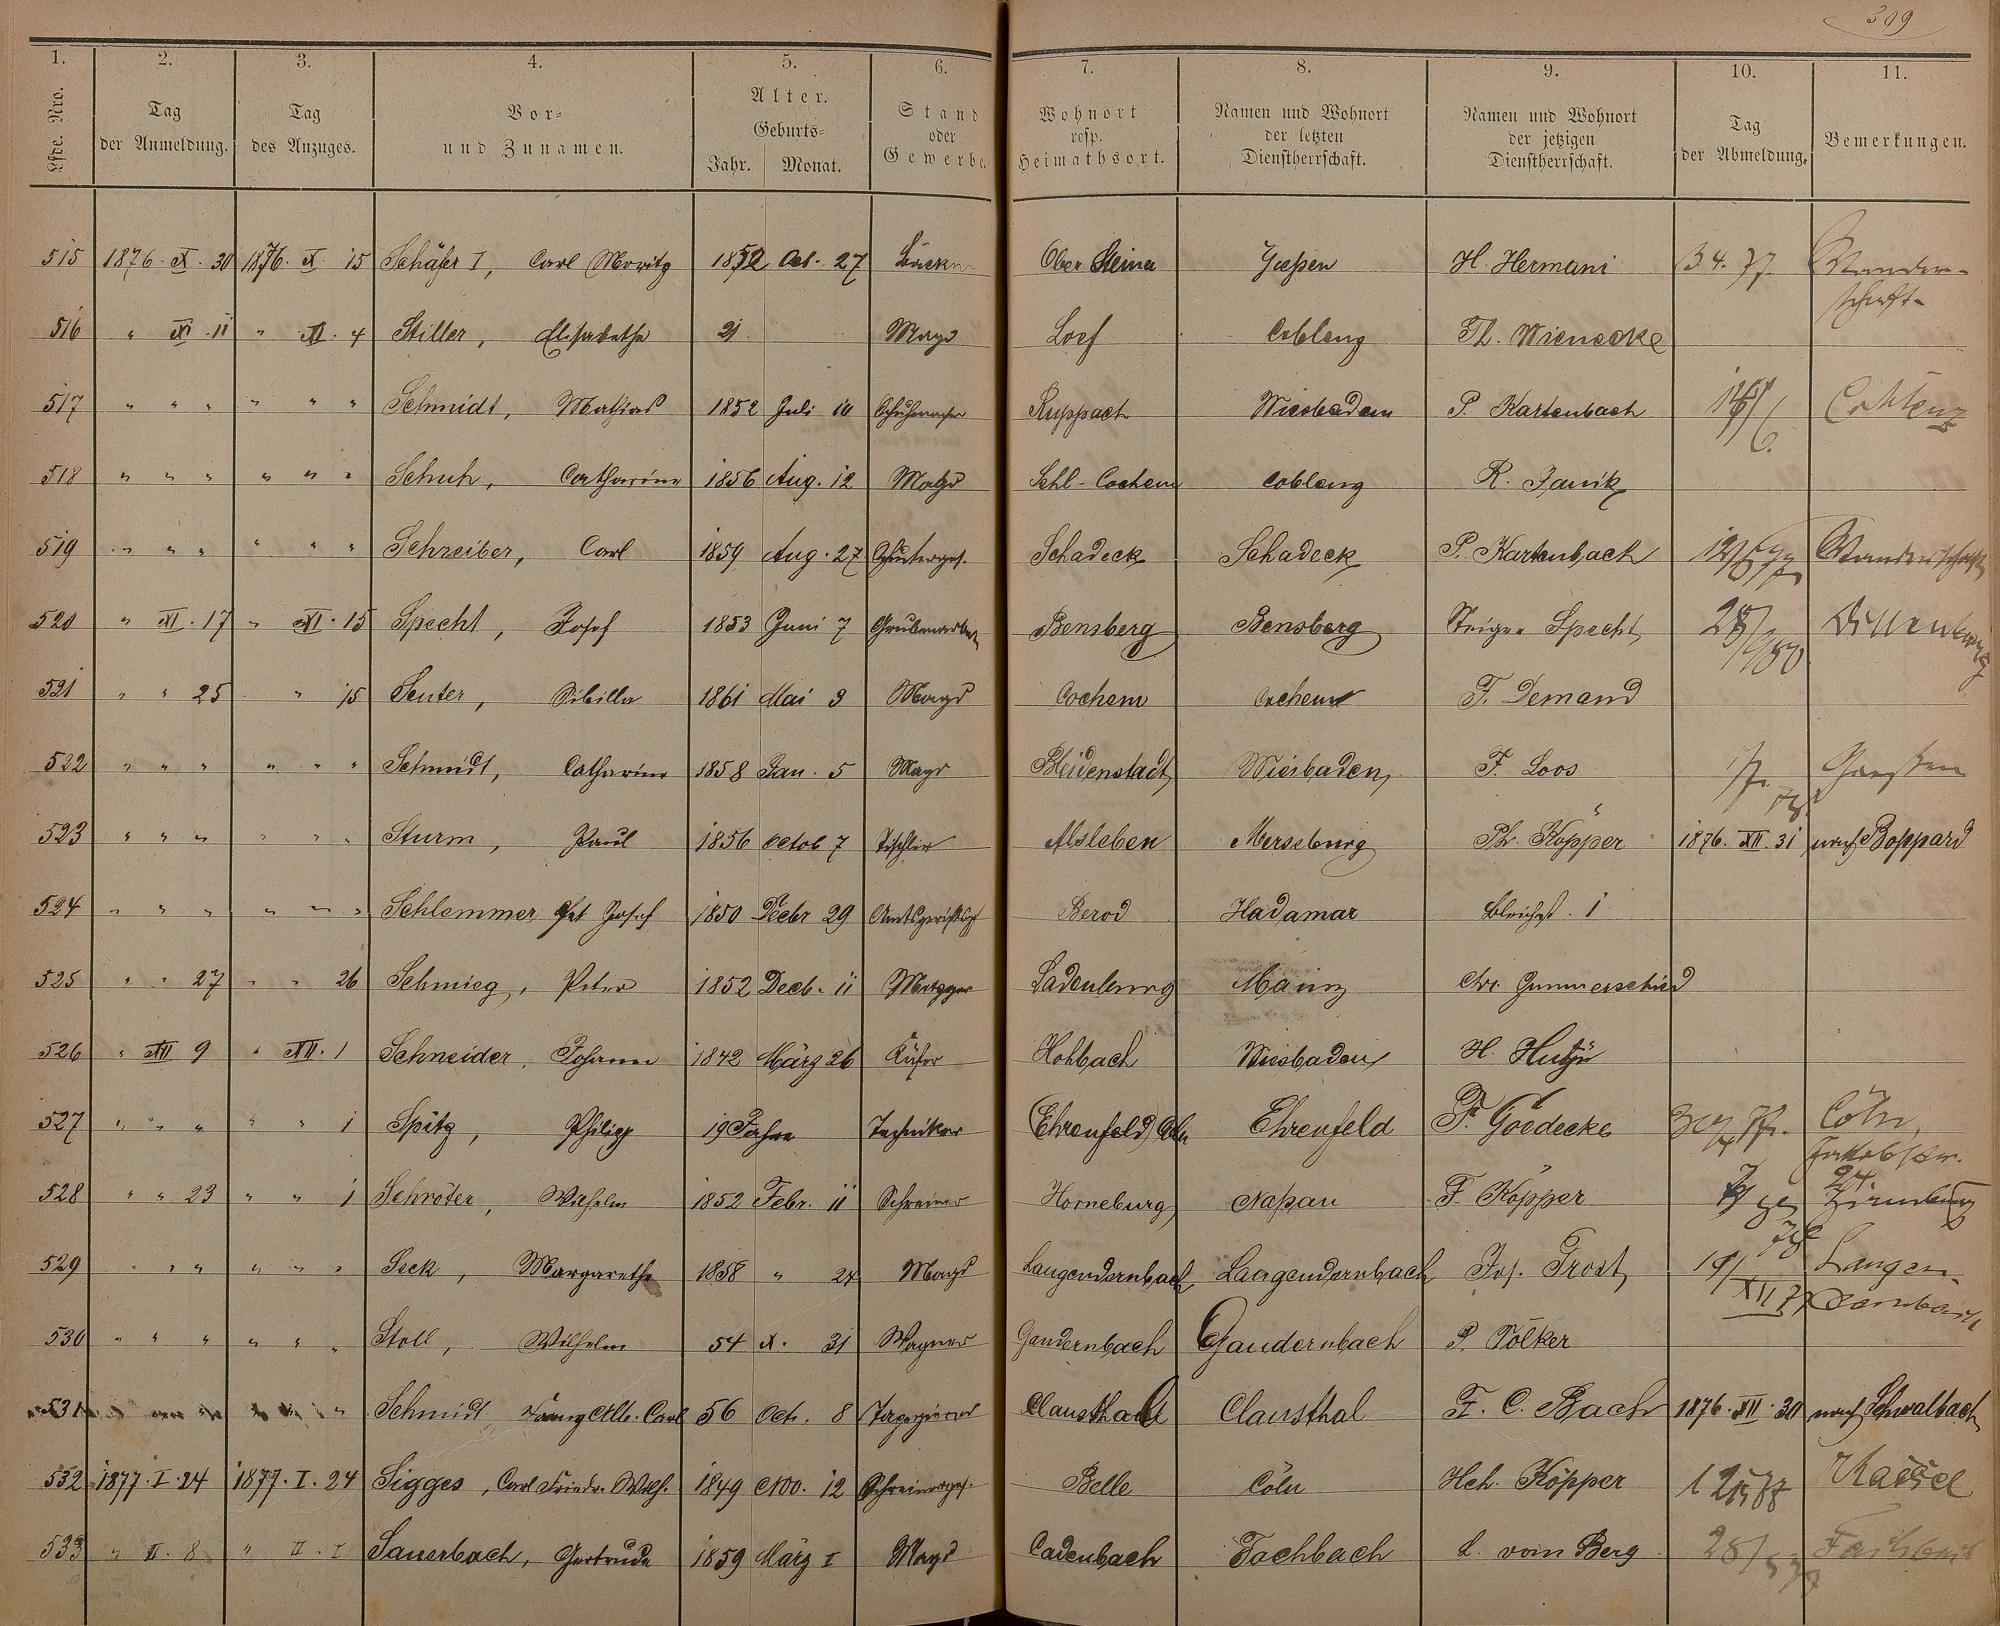 309
1. 2. 3. 4. 5. 6. 7. 8. 9. 10. 11.
Lfde. Nro. Tag der Anmeldung. Tag des Anzuges. Vor- und Zunamen. Alter. Geburts- Jahr. Monat. Stand oder Gewerbe. Wohnort resp. Heimathsort. Namen und Wohnort der letzten Dienstherrschaft. Namen und Wohnort der jetzigen Dienstherrschaft. Tag der Abmeldung. Bemerkungen.
515 1876. X. 30 1876. X. 15 Schäfer I, Carl Moritz 1852 Oct. 27 Ober Giessen H. Hermani 3.4.77. Wanderschaft
516 " XI. 11 " XI. 4 Stiller, Elisabetha 21 Magd Loef Coblenz Th. Wienecke
517 " " " " " " Schmidt, Mathias 1852 Juli 10 Schuhmacher Ruppach Wiesbaden P. Kartenbach Coblenz
518 " " " " " " Schuh, Catharina 1856 Aug. 12 Magd Sehl-Cochem Coblenz R. Janik
519 " " " " " " Schreiber, Carl 1859 Aug. 27 Schusterges. Schadeck Schadeck P. Kartenbach Wanderschaft
520 " XI. 17 " XI. 15 Specht, Josef 1853 Juni 7 Grubenarbeiter Bensberg Bensberg Steiger Specht Dillenburg
521 " " 25 " 15 Senter, Sibilla 1861 Mai 3 Magd Cochem Cochem F. Demand
522 " " " " " " Schmidt, Catharina 1858 Jan. 5 Magd Bleidenstadt Wiesbaden F. Loos
523 " " " " " " Sturm, Paul 1856 Octob 7 Tischler Alsleben Merseburg Ph. Köpper 1876. XII. 31 nach Boppard
524 " " " " " " Schlemmer Josef 1850 Decbr 29 Berod Hadamar Bleichst. 1
525 " " 27 " " 26 Schmieg, Peter 1852 Decb. 11 Metzger Ladenburg Mainz Chr. Gummerschied
526 " XII 9 " XII. 1 Schneider, Johann 1842 März 26 Küfer Hohbach Wiesbaden H.
527 " " " " " 1 Spitz, Philipp 19 Jahre Techniker Ehrenfeld Cöln Ehrenfeld F. Goedecke Cöln,
528 " " 23 " " 1 Schröter, Wilhelm 1852 Febr. 11 Schreiner Horneburg Nassau F. Köpper
529 " " " " " " Seck, Margaretha 1858 " 24 Magd Langendernbach Langendernbach Jos. Trost 19/XII 77 Langendernbach
530 " " " " " " Stoll, Wilhelm 54 X. 31 Wagner Gandernbach Gandernbach P. Pölker
531 Schmidt, Carl 56 Oct. 8 Tapezierer Clausthal Clausthal F. C. Bach 1876. XII. 30 nach Schwalbach
532 1877. I. 24 1877. I. 24 Sigges, Carl Friedr. Wilh. 1849 Nov. 12 Schreinerges. Belle Cöln Hch. Köpper Kassel
533 " II. 8 " II. I Sauerbach, Gertrude 1859 März I Magd Cadenbach Fachbach L. vom Berg Fachbach